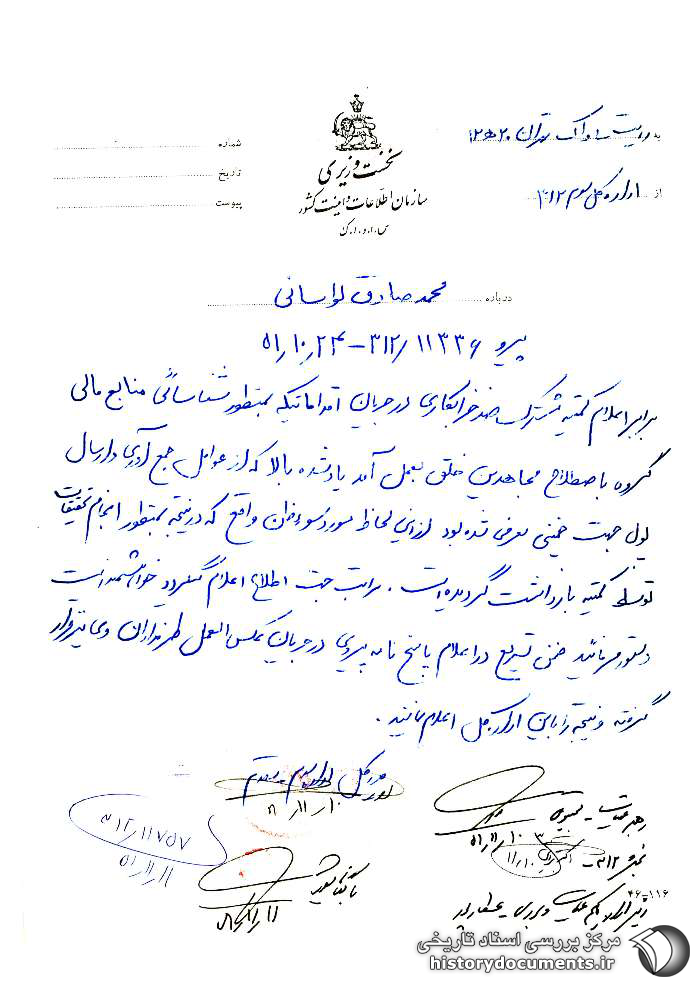 نخست وزیری
سازمان اطلاعات و امنیت کشور
س.ا.و.ا.ک
به ریاست ساواک تهران ۲۰ ه ۱۲
از اداره کل سوم ۳۱۲
شماره
تاریخ
پیوست
درباره محمد صادق لواسانی
پیرو ۳۱۲/۱۱۳۳۶ - ۵۱/۱۰/۲۴
برابر اعلام کمیته مشترک ضد خرابکاری در جریان اقداماتیکه بمنظور شناسائی منابع مالی
گروه باصطلاح مجاهدین خلق بعمل آمد یاد شده بالا که از عوامل جمع آوری و ارسال
پول جهت خمینی معرفی شده بود از این لحاظ مورد سوءظن واقع که در نتیجه بمنظور انجام تحقیقات
توسط کمیته بازداشت گردیده است. مراتب جهت اطلاع اعلام میگردد خواهشمند است
دستور فرمائید ضمن تسریع در اعلام پاسخ نامه پیروی در جریان عکس العمل طرفداران وی نیز قرار
گرفته و نتیجه را باین اداره کل اعلام نمایند.
مدیر کل اداره سوم
۱۰/۱۱/
رهبر عملیات
۵۱/۱۱/۱۰
۳۱۲
۳۱۲/۱۱۷۵۷
۵۱/۱۱/۱۱
۴۶-۱۱۶
مرکز بررسی اسناد تاریخی
historydocuments.ir